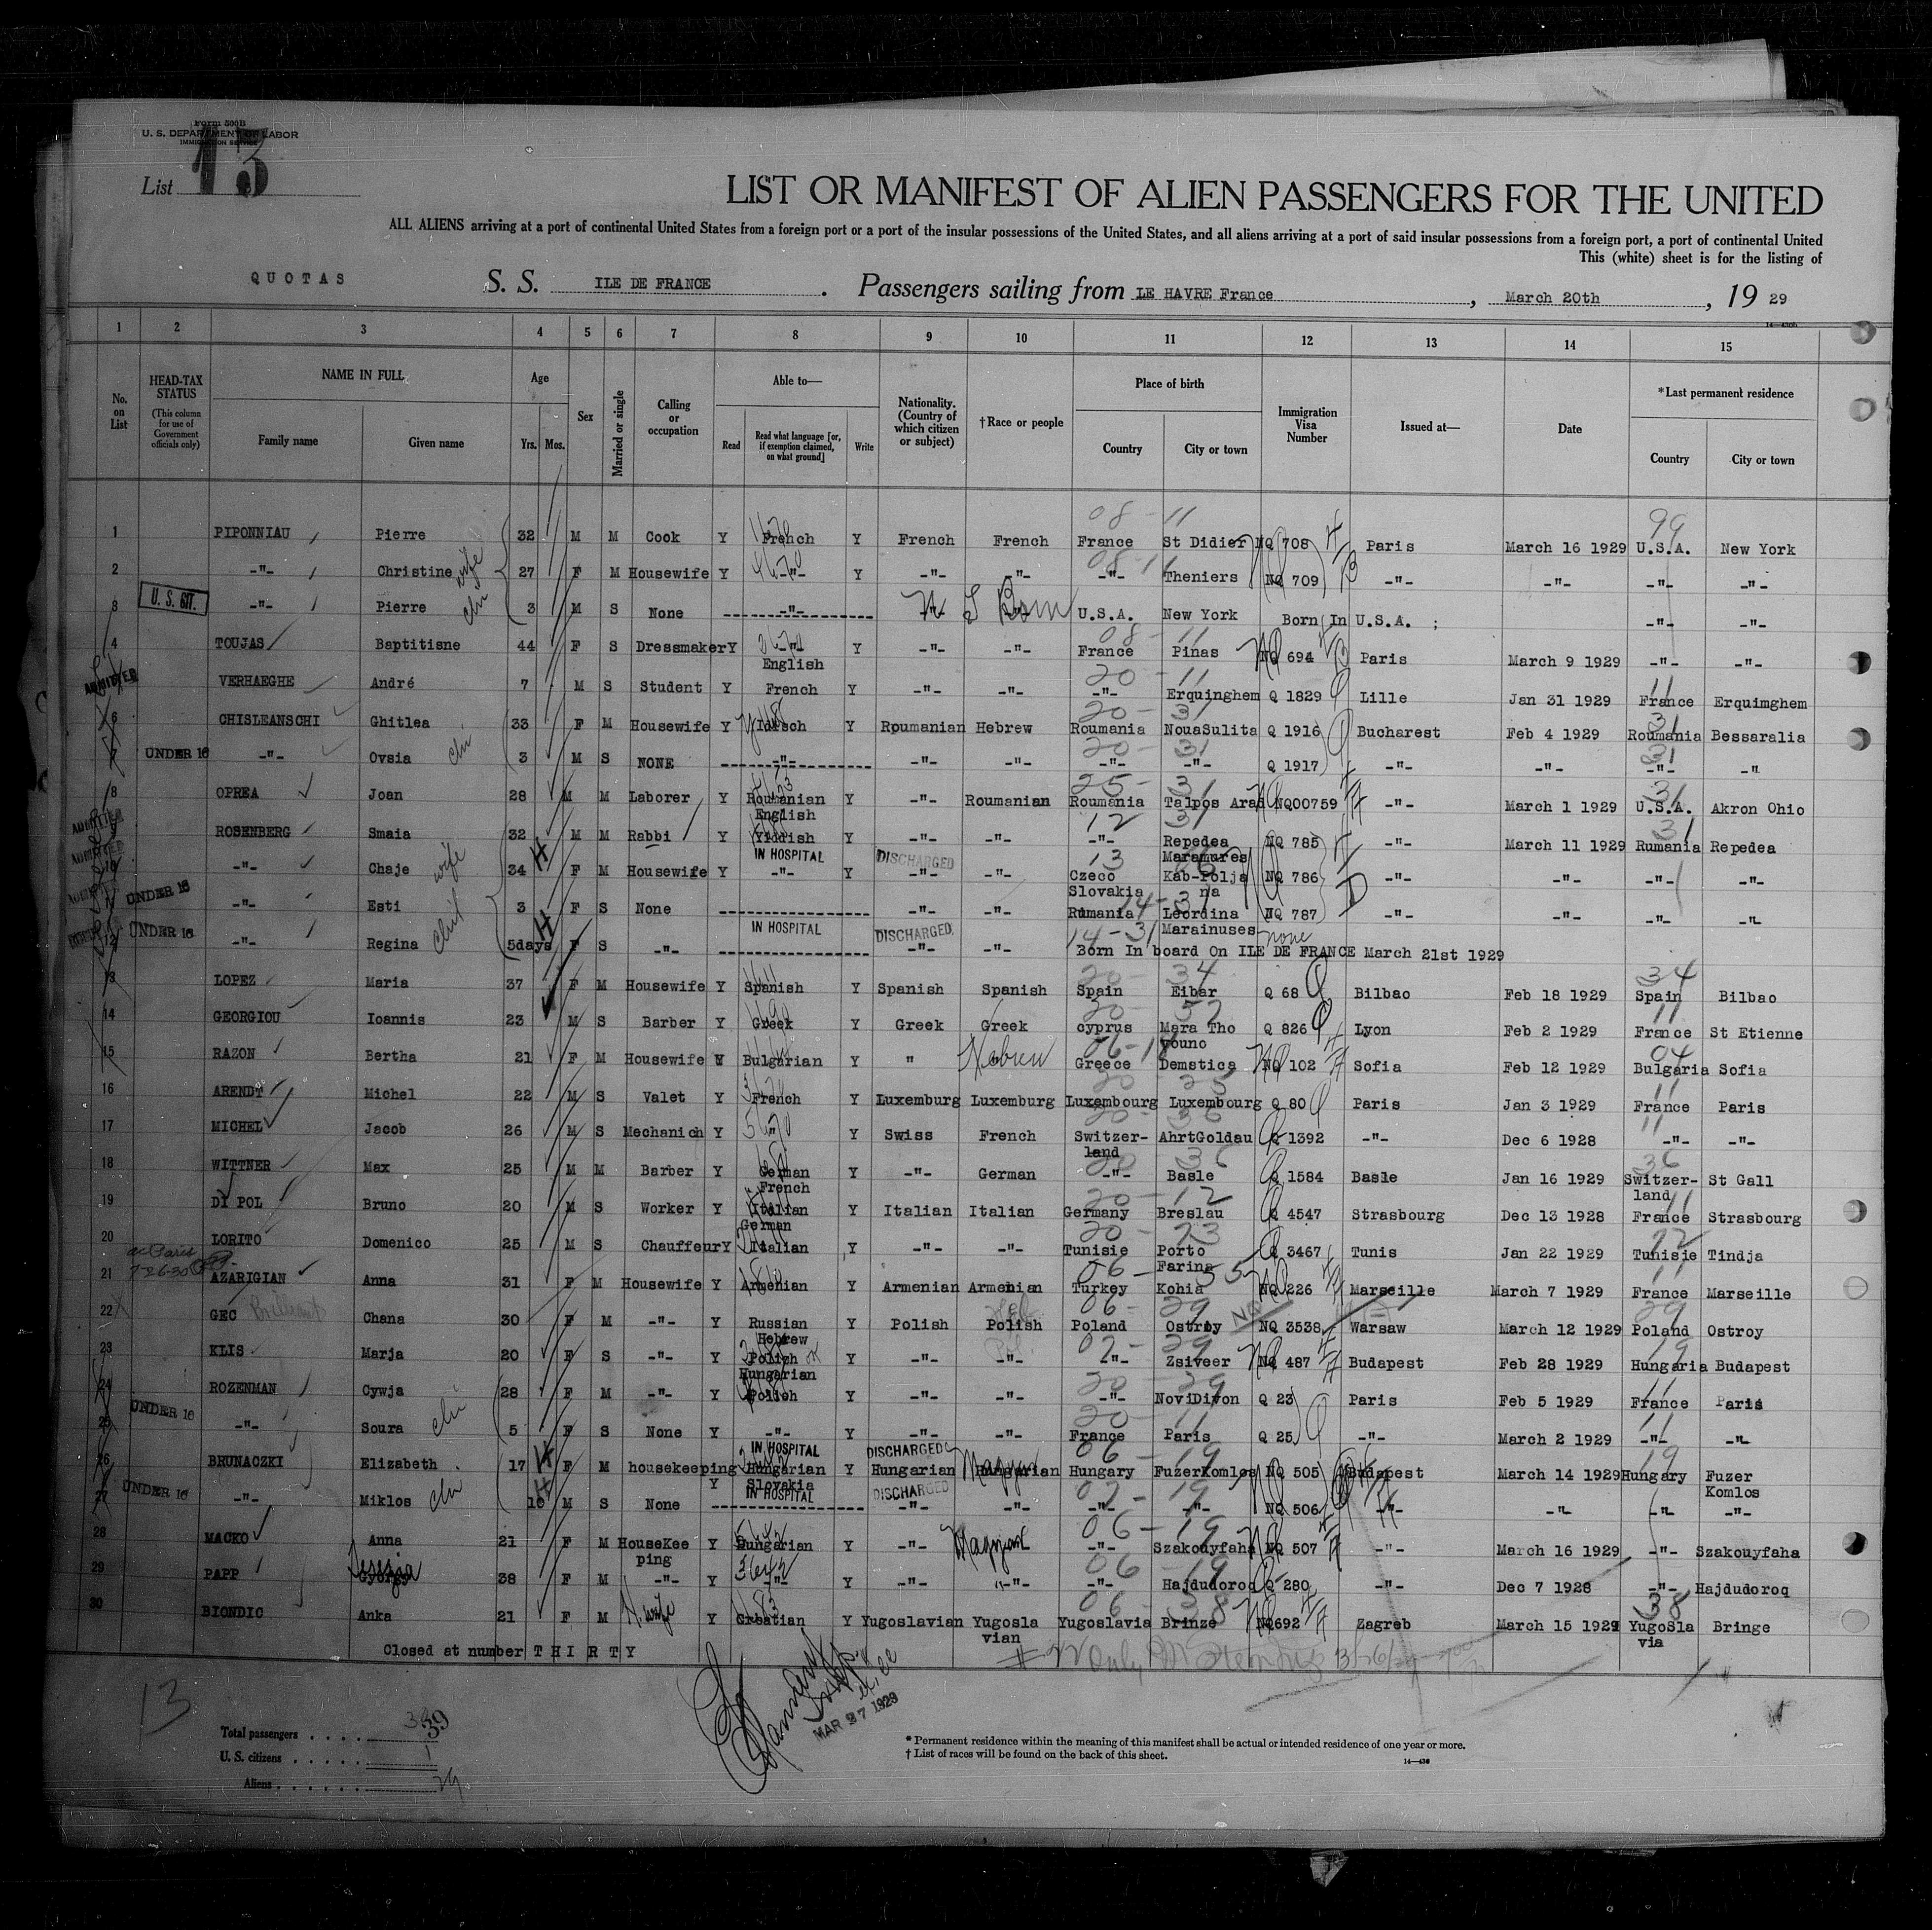 Form 500B
U. S. DEPARTMENT OF LABOR
IMMIGRATION SERVICE
List 13
LIST OR MANIFEST OF ALIEN PASSENGERS FOR THE UNITED
ALL ALIENS arriving at a port of continental United States from a foreign port or a port of the insular possessions of the United States, and all aliens arriving at a port of said insular possessions from a foreign port, a port of continental United
This (white) sheet is for the listing of
QUOTAS S. S. ILE DE FRANCE . Passengers sailing from LE HAVRE France , March 20th , 19 29
1 2 3 4 5 6 7 8 9 10 11 12 13 14 15
No. on List
HEAD-TAX STATUS
(This column for use of Government officials only)
NAME IN FULL
Family name Given name
Age
Yrs. Mos.
Sex
Married or single
Calling or occupation
Able to—
Read
Read what language [or, if exemption claimed, on what ground]
Write
Nationality. (Country of which citizen or subject)
†Race or people
Place of birth
Country City or town
Immigration Visa Number
Issued at—
Date
*Last permanent residence
Country City or town
1 PIPONNIAU Pierre 32 M M Cook Y French Y French French France St Didier NQ 708 Paris March 16 1929 U.S.A. New York
2 -"- Christine wife 27 F M Housewife Y -"- Y -"- -"- -"- Theniers NQ 709 -"- -"- -"- -"-
3 U. S. CIT. -"- Pierre 3 M S None -"- U S Born U.S.A. New York Born In U.S.A. ; -"- -"-
4 TOUJAS Baptitisne 44 F S Dressmaker Y -"- English Y -"- -"- France Pinas NQ 694 Paris March 9 1929 -"- -"-
ADMITTED VERHAEGHE André 7 M S Student Y French Y -"- -"- -"- Erquinghem Q 1829 Lille Jan 31 1929 France Erquimghem
6 CHISLEANSCHI Ghitlea 33 F M Housewife Y Yidisch Y Roumanian Hebrew Roumania NouaSulita Q 1916 Bucharest Feb 4 1929 Roumania Bessaralia
7 UNDER 16 -"- Ovsia 3 M S NONE -"- -"- -"- -"- -"- Q 1917 -"- -"- -"- -"
8 OPREA Joan 28 M M Laborer Y Roumanian English Y -"- Roumanian Roumania Talpos Arad NQ00759 -"- March 1 1929 U.S.A. Akron Ohio
ADMITTED ROSENBERG Smaia 32 M M Rabbi Y Yiddish Y -"- -"- -"- Repedea Maramures NQ 785 -"- March 11 1929 Rumania Repedea
10 -"- Chaje wife 34 F M Housewife Y IN HOSPITAL -"- Y DISCHARGED -"- -"- Czeco Slovakia Kab-Polja na NQ 786 -"- -"- -"- -"-
UNDER 16 -"- Esti 3 F S None -"- -"- Rumania Leordina Marainuses NQ 787 -"- -"- -"- -"-
12 UNDER 16 -"- Regina 5days F S -"- IN HOSPITAL DISCHARGED -"- -"- Born In board On ILE DE FRANCE March 21st 1929 none
13 LOPEZ Maria 37 F M Housewife Y Spanish Y Spanish Spanish Spain Eibar Q 68 Bilbao Feb 18 1929 Spain Bilbao
14 GEORGIOU Ioannis 23 M S Barber Y Greek Y Greek Greek cyprus Mara Tho vouno Q 826 Lyon Feb 2 1929 France St Etienne
15 RAZON Bertha 21 F M Housewife Y Bulgarian Y " Hebrew Greece Demstica NQ 102 Sofia Feb 12 1929 Bulgaria Sofia
16 ARENDT Michel 22 M S Valet Y French Y Luxemburg Luxemburg Luxembourg Luxembourg Q 80 Paris Jan 3 1929 France Paris
17 MICHEL Jacob 26 M S Mechanich Y " Y Swiss French Switzer-land AhrtGoldau Q 1392 -"- Dec 6 1928 -"- -"-
18 WITTNER Max 25 M M Barber Y German French Y -"- German -"- Basle Q 1584 Basle Jan 16 1929 Switzer-land St Gall
19 DI POL Bruno 20 M S Worker Y Italian German Y Italian Italian Germany Breslau Q 4547 Strasbourg Dec 13 1928 France Strasbourg
20 LORITO Domenico 25 M S Chauffeur Y Italian Y -"- -"- Tunisie Porto Farina Q 3467 Tunis Jan 22 1929 Tunisie Tindja
21 AZARIGIAN Anna 31 F M Housewife Y Armenian Y Armenian Armenian Turkey Kohia NQ 226 Marseille March 7 1929 France Marseille
22 GEC Chana 30 F M -"- Y Russian Hebrew Y Polish Polish Poland Ostroy NQ 3538 Warsaw March 12 1929 Poland Ostroy
23 KLIS Marja 20 F S -"- Y Polich Hungarian Y -"- -"- -"- Zsiveer NQ 487 Budapest Feb 28 1929 Hungaria Budapest
24 ROZENMAN Cywja 28 F M -"- Y Polish Y -"- -"- -"- NoviDivon Q 23 Paris Feb 5 1929 France Paris
25 UNDER 16 -"- Soura 5 F S None Y -"- Y -"- -"- France Paris Q 25 -"- March 2 1929 -"- -"-
26 BRUNACZKI Elizabeth 17 F M housekeeping Y IN HOSPITAL Hungarian Slovakia Y DISCHARGED Hungarian Hungarian Magyar Hungary Fuzerkomlos NQ 505 Budapest March 14 1929 Hungary Fuzer Komlos
27 UNDER 16 -"- Miklos 10 M S None IN HOSPITAL DISCHARGED -"- -"- -"- -"- NQ 506 -"- -"- -"- -"-
28 MACKO Anna 21 F M HouseKee ping Y Hungarian Y -"- Magyar -"- Szakouyfaha NQ 507 -"- March 16 1929 -"- Szakouyfaha
29 PAPP Teresia Gyorgy 38 F M -"- Y -"- Y -"- -"- -"- Hajdudoroq Q 280 -"- Dec 7 1928 -"- Hajdudoroq
30 BIONDIC Anka 21 F M H.wife Y Croatian Y Yugoslavian Yugosla vian Yugoslavia Brinze NQ692 Zagreb March 15 1929 YugoSla via Bringe
Closed at number THIRTY
13
MAR 27 1929
Total passengers . . . . 39
U. S. citizens . . . . . 1
Aliens . . . . . . 29
* Permanent residence within the meaning of this manifest shall be actual or intended residence of one year or more.
† List of races will be found on the back of this sheet.
14—436